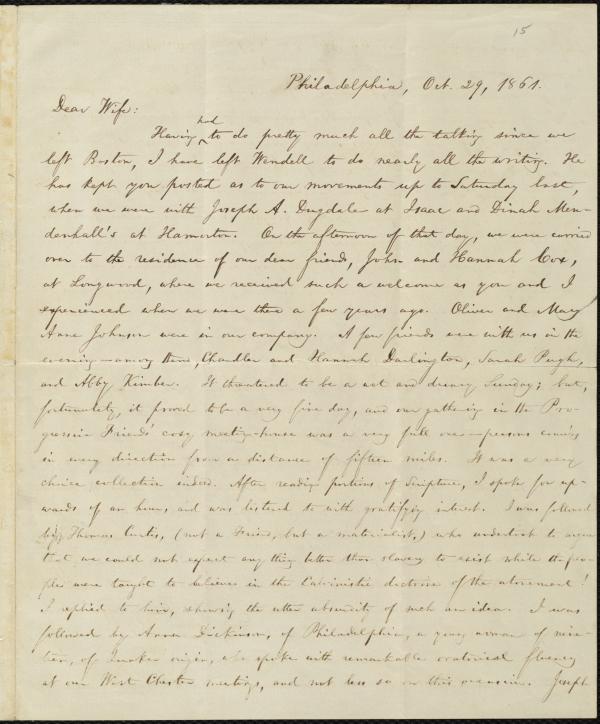 15
Philadelphia, Oct. 29, 1861.
Dear Wife:
Having had to do pretty much all the talking since we
left Boston, I have left Wendell to do nearly all the writing. He
has kept you posted as to our movements up to Saturday last,
when we were with Joseph A. Dugdale at Isaac and Dinah Men-
denhall's at Hamorton. On the afternoon of that day, we were carried
over to the residence of our dear friends, John and Hannah Cox,
at Longwood, where we received such a welcome as you and I
experienced when we were there a few years ago. Oliver and Mary
Anne Johnson were in our company. A few friends were with us in the
evening—among them, Chandler and Hannah Darlington, Sarah Pugh,
and Abby Kimber. It threatened to be a wet and dreary Sunday; but,
fortunately, it proved to be a very fine day, and our gathering in the Pro-
gressive Friends' cosy meeting-house was a very full one—persons coming
in every direction from a distance of fifteen miles. It was a very
choice collection indeed. After reading portions of Scripture, I spoke for up-
wards of an hour, and was listened to with gratifying interest. I was followed
by Thomas Curtis, (not a Friend, but a materialist,) who undertook to argue
that we could not expect any thing better than slavery to exist while the peo-
ple were taught to believe in the Calvinistic doctrine of the atonement!
I replied to him, showing the utter absurdity of such an idea. I was
followed by Anna Dickinson, of Philadelphia, a young woman of nine-
teen, of Quaker origin, who spoke with remarkable oratorical fluency
at our West Chester meetings, and not less so on this occasion. Joseph